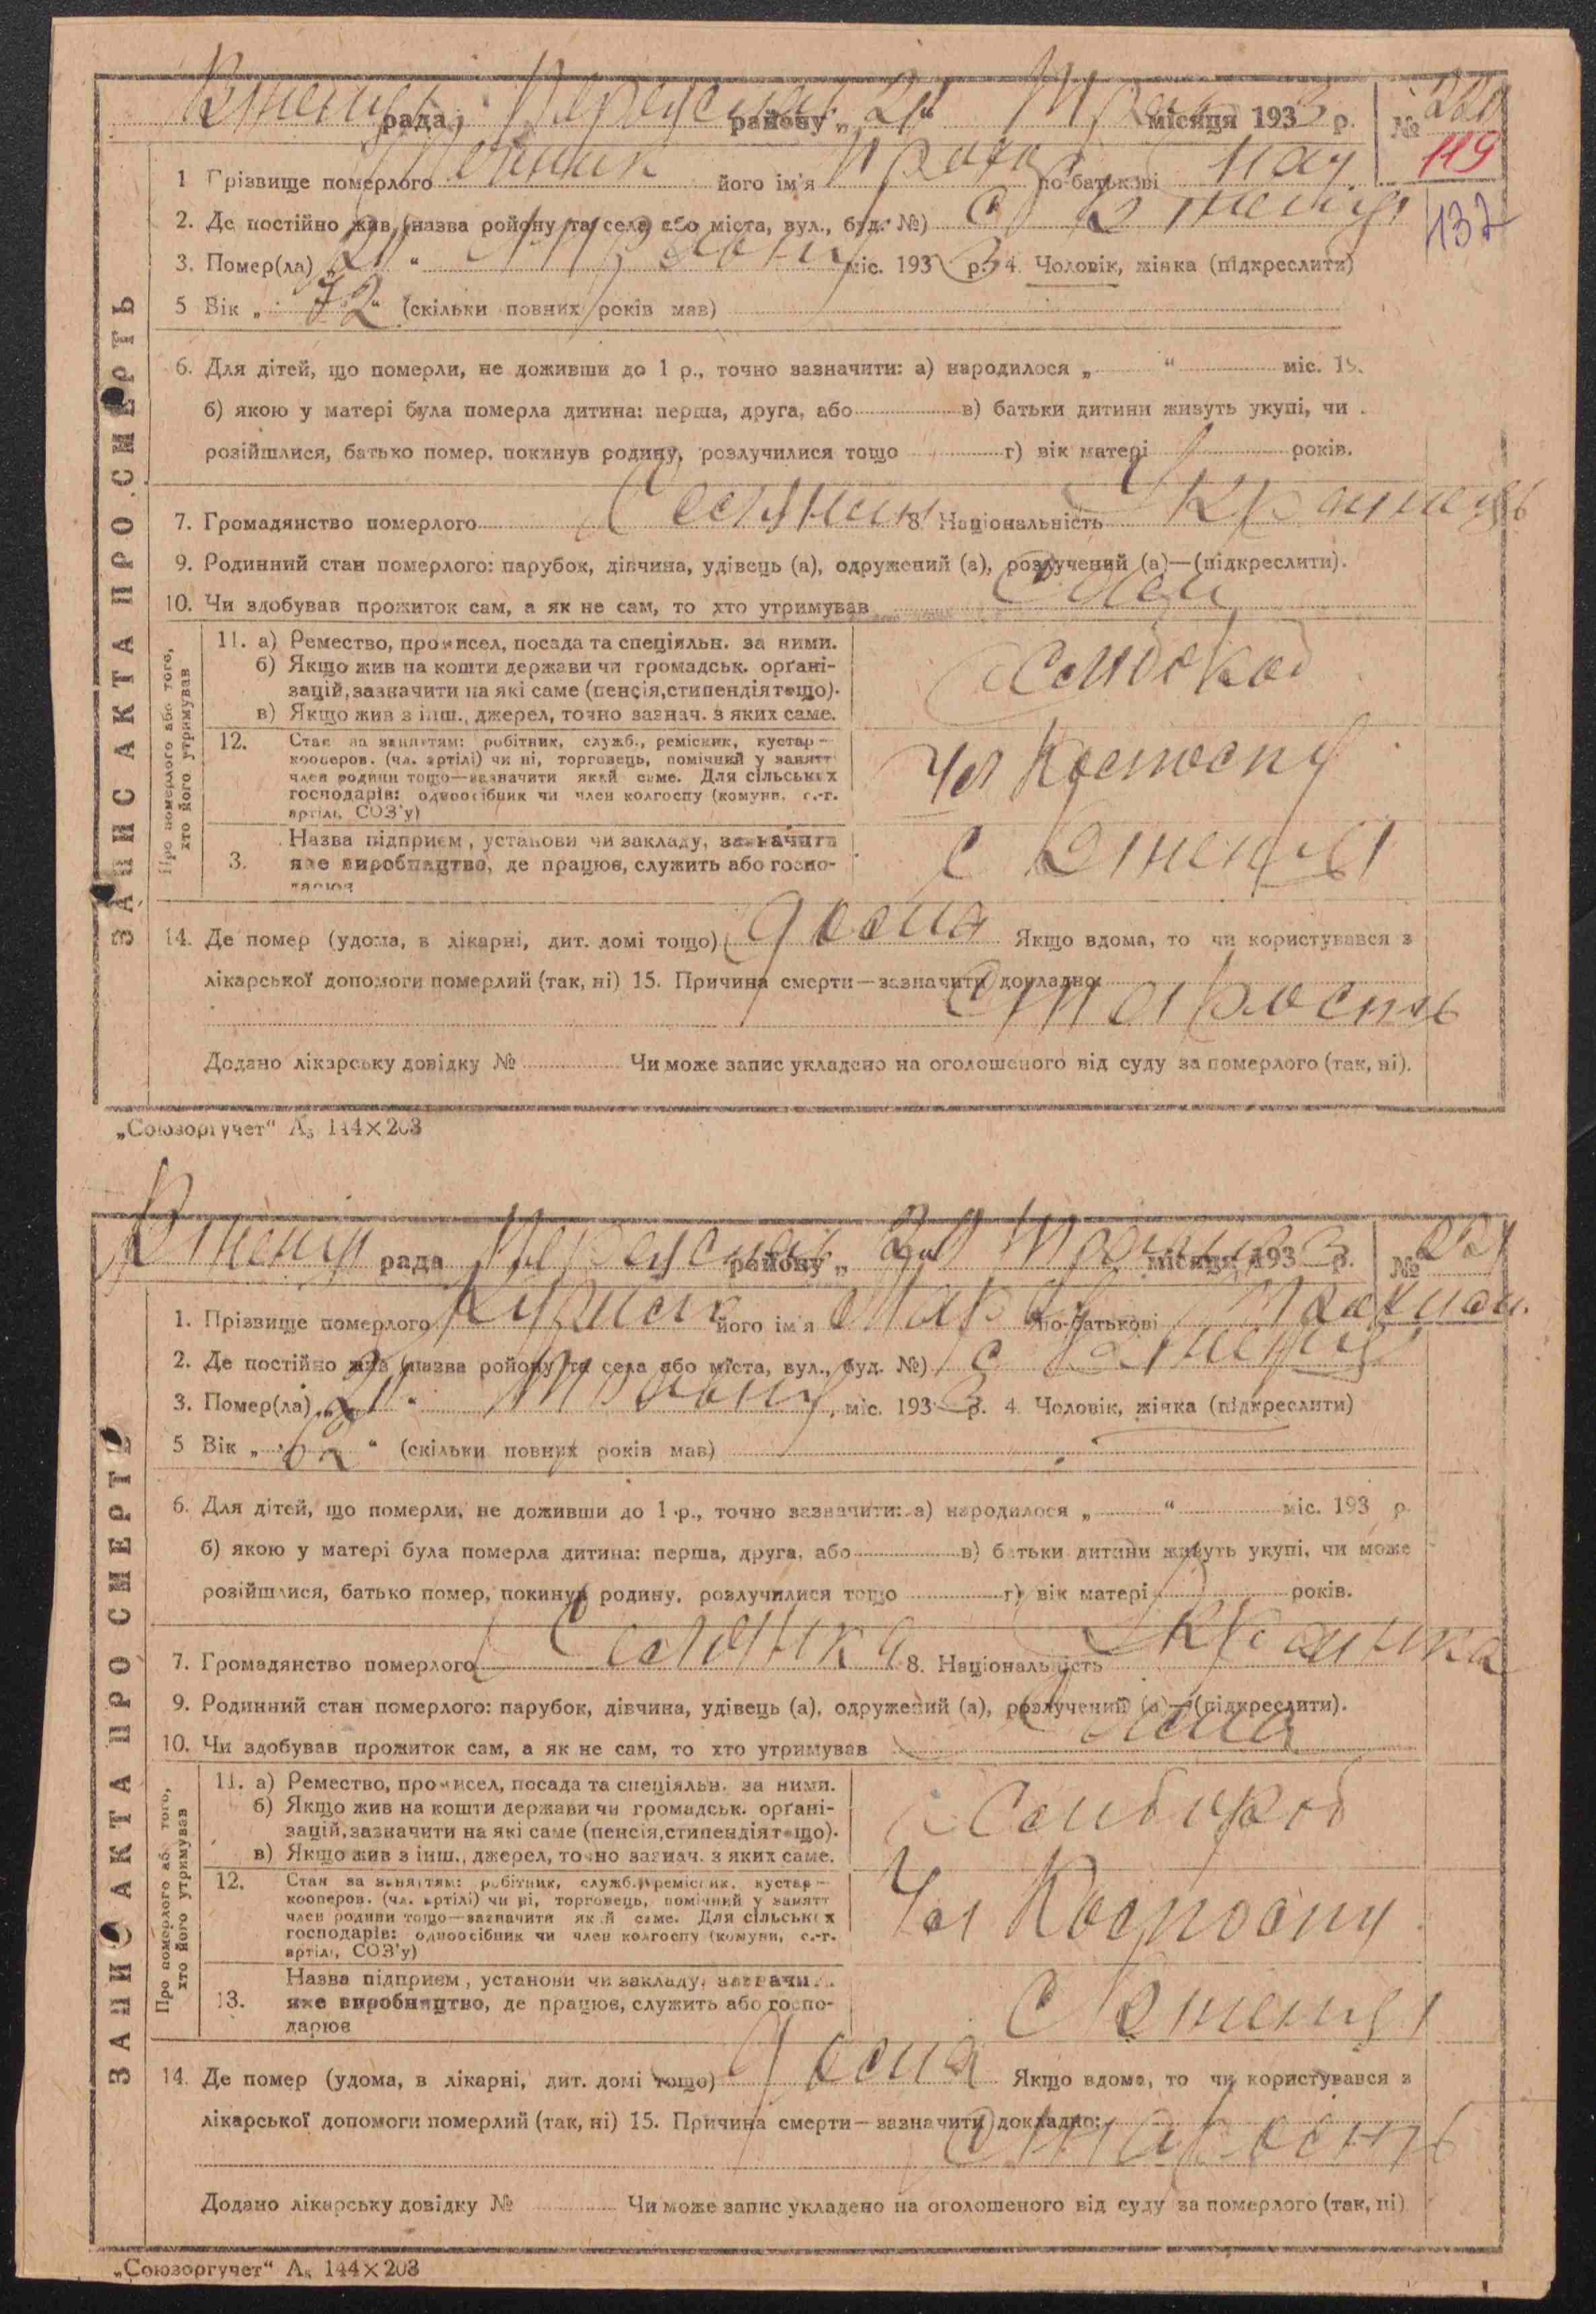 рада, району „21“ місяця 193 3 р. № 220
119
1 Прізвище померлого його ім'я по-батькові
137
2. Де постійно жив (назва ройону та села або міста, вул., буд. №) с
3. Помер(ла) „21“ Травня міс. 193 3 р. 4. Чоловік, жінка (підкреслити)
5 Вік „72“ (скільки повних років мав)
6. Для дітей, що померли, не доживши до 1 р., точно зазначити: а) народилося „ “ міс. 19
б) якою у матері була померла дитина: перша, друга, або в) батьки дитини живуть укупі, чи
розійшлися, батько помер, покинув родину, розлучилися тощо г) вік матері років.
7. Громадянство померлого 8. Національність Українець
9. Родинний стан померлого: парубок, дівчина, удівець (а), одружений (а), розлучений (а)—(підкреслити).
10. Чи здобував прожиток сам, а як не сам, то хто утримував Сам
Про померлого або того, хто його утримував
11. а) Ремество, промисел, посада та спеціяльн. за ними.
б) Якщо жив на кошти держави чи громадськ. орґані-
зацій, зазначити на які саме (пенсія, стипендія тощо).
в) Якщо жив з інш., джерел, точно зазнач. з яких саме.
12. Стан за заняттям: робітник, служб., реміскик, кустар—
кооперов. (чл. артілі) чи ні, торговець, помічний у занятт
член родини тощо—зазначити який саме. Для сільських
господарів: одноосібник чи член колгоспу (комуни, с.-г.
артілі, СОЗ'у)
Чл
Назва підприєм, установи чи закладу, зазначити
3. яке виробництво, де працює, служить або госпо-
дарює
с
14. Де помер (удома, в лікарні, дит. домі тощо) Дома Якщо вдома, то чи користувався з
лікарської допомоги померлий (так, ні) 15. Причина смерти—зазначити докладно:
Старость
Додано лікарську довідку № Чи може запис укладено на оголошеного від суду за померлого (так, ні).
ЗАПИС АКТА ПРО СМЕРТЬ
„Союзоргучет“ А₅ 144×203
рада району „21“ Травня місяця 193 3 р. № 221
1. Прізвище померлого його ім'я по-батькові
2. Де постійно жив (назва ройону та села або міста, вул., буд. №) с
3. Помер(ла) „21“ Травня, міс. 193 3 р. 4. Чоловік, жінка (підкреслити)
5 Вік „ “ (скільки повних років мав)
6. Для дітей, що померли, не доживши до 1 р., точно зазначити: а) народилося „ “ міс. 193 р.
б) якою у матері була померла дитина: перша, друга, або в) батьки дитини живуть укупі, чи може
розійшлися, батько помер, покинув родину, розлучилися тощо г) вік матері років.
7. Громадянство померлого 8. Національність Українка
9. Родинний стан померлого: парубок, дівчина, удівець (а), одружений (а), розлучений (а)—(підкреслити).
10. Чи здобував прожиток сам, а як не сам, то хто утримував Сама
Про померлого або того, хто його утримував
11. а) Ремество, промисел, посада та спеціяльн. за ними.
б) Якщо жив на кошти держави чи громадськ. орґані-
зацій, зазначити на які саме (пенсія, стипендія тощо).
в) Якщо жив з інш., джерел, точно зазнач. з яких саме.
12. Стан за заняттям: робітник, служб., реміскик, кустар—
кооперов. (чл. артілі) чи ні, торговець, помічний у занятт
член родини тощо—зазначити який саме. Для сільських
господарів: одноосібник чи член колгоспу (комуни, с.-г.
артілі, СОЗ'у)
Чл
Назва підприєм, установи чи закладу, зазначи
13. яке виробництво, де працює, служить або госпо-
дарює
с
14. Де помер (удома, в лікарні, дит. домі тощо) Дома Якщо вдома, то чи користувався з
лікарської допомоги померлий (так, ні) 15. Причина смерти—зазначити докладно:
Старость
Додано лікарську довідку № Чи може запис укладено на оголошеного від суду за померлого (так, ні)
ЗАПИС АКТА ПРО СМЕРТЬ
„Союзоргучет“ А₅ 144×203